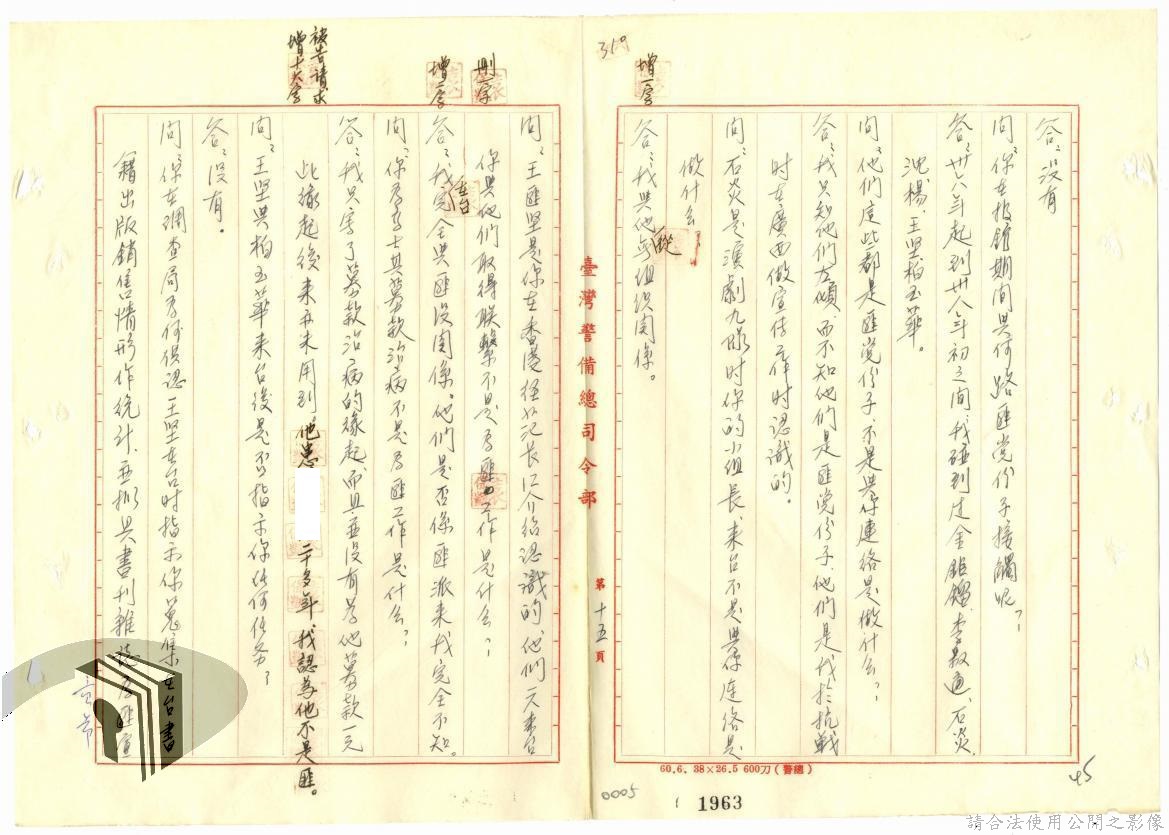 答：沒有
問：你在報館期間與何路匪党份子接觸呢？
答：卅六年起到卅八年初之間，我碰到过金鉅鎦、李敷通、石炎、
沈楊、王坚柏玉華。
問：他們這些都是匪党份子，不是與你連絡是做什么？
答：我只知他們左傾，而不知他們是匪党份子，他們是我於抗戰
时在廣西做宣传工作时認識的。
問：石炎是演劇九隊时你的小組長，来台不是與你連络是
做什么
答：我與他無組织関係。
增一字
310
臺灣警備總司令部
第十五頁
60.6. 38×26.5 600刀(警總)
1963
0005
45
問：王匪坚是你在香港經 介紹認識的，他們一夫来台
你與他們取得联繫不是為匪工作是什么？
刪一字
答：我完全與匪没関係，他們是否係匪派来我完全不知。
在台
增一字
問：你為 其募款治病不是為匪工作是什么？
答：我只寫了募款治病的缘起，而且並没有為他募款一元
此缘起後来亦未用到，他患 二十多年，我認為他不是匪。
被告請求
增十六字
問：王坚與柏玉華来台後是否指示你任何任务？
答：没有。
問：你在調查局為何供認王坚在台时指示你蒐集在台書
籍出版銷售情形作統計，並拟具書刊雜誌為匪宣
請合法使用公開之影像